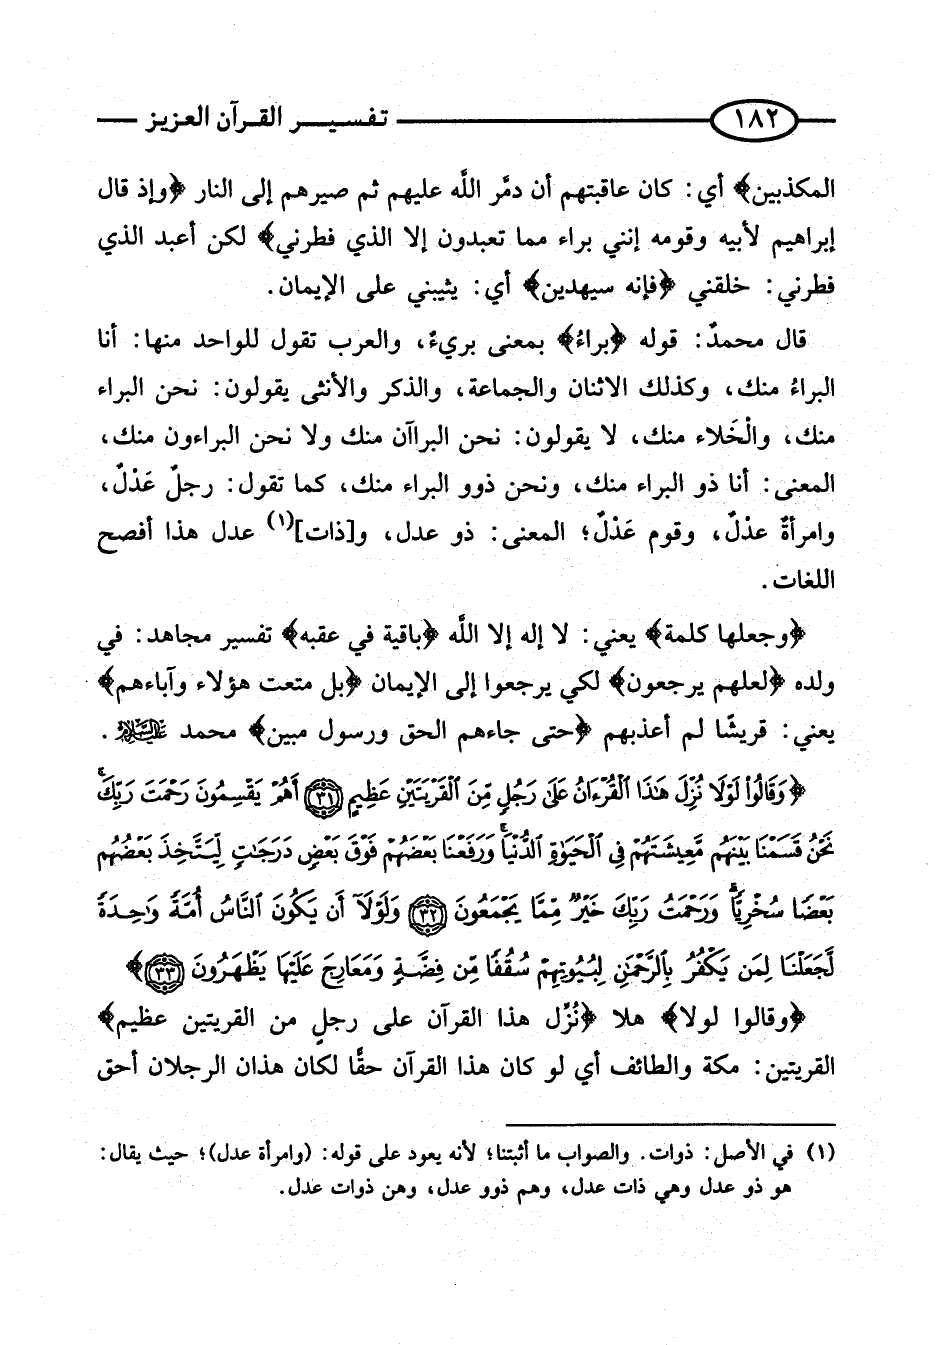 ١٨٢ تفسير القرآن العزيز
المكذبين﴾ أي: كان عاقبتهم أن دمَّر اللَّه عليهم ثم صيرهم إلى النار ﴿وإذ قال
إبراهيم لأبيه وقومه إنني براء مما تعبدون إلا الذي فطرني﴾ لكن أعبد الذي
فطرني: خلقني ﴿فإنه سيهدين﴾ أي: يثيبني على الإيمان.
قال محمدٌ: قوله ﴿براءُ﴾ بمعنى بريءُ، والعرب تقول للواحد منها: أنا
البراءُ منك، وكذلك الاثنان والجماعة، والذكر والأنثى يقولون: نحن البراء
منك، والْخَلاء منك، لا يقولون: نحن البراآن منك ولا نحن البراءون منك،
المعنى: أنا ذو البراء منك، ونحن ذوو البراء منك، كما تقول: رجلٌ عَدْلٌ،
وامرأةٌ عدْلٌ، وقوم عَدْلٌ؛ المعنى: ذو عدل، و[ذات](١) عدل هذا أفصح
اللغات.
﴿وجعلها كلمة﴾ يعني: لا إله إلا اللَّه ﴿باقية في عقبه﴾ تفسير مجاهد: في
ولده ﴿لعلهم يرجعون﴾ لكي يرجعوا إلى الإيمان ﴿بل متعت هؤلاء وآباءهم﴾
يعني: قريشًا لم أعذبهم ﴿حتى جاءهم الحق ورسول مبين﴾ محمد عليه السلام.
﴿وَقَالُوا۟ لَوْلَا نُزِّلَ هَٰذَا ٱلْقُرْءَانُ عَلَىٰ رَجُلٍ مِّنَ ٱلْقَرْيَتَيْنِ عَظِيمٍ ٣١ أَهُمْ يَقْسِمُونَ رَحْمَتَ رَبِّكَ ۚ
نَحْنُ قَسَمْنَا بَيْنَهُم مَّعِيشَتَهُمْ فِى ٱلْحَيَوٰةِ ٱلدُّنْيَا ۚ وَرَفَعْنَا بَعْضَهُمْ فَوْقَ بَعْضٍ دَرَجَٰتٍ لِّيَتَّخِذَ بَعْضُهُم
بَعْضًا سُخْرِيًّا ۗ وَرَحْمَتُ رَبِّكَ خَيْرٌ مِّمَّا يَجْمَعُونَ ٣٢ وَلَوْلَآ أَن يَكُونَ ٱلنَّاسُ أُمَّةً وَٰحِدَةً
لَّجَعَلْنَا لِمَن يَكْفُرُ بِٱلرَّحْمَٰنِ لِبُيُوتِهِمْ سُقُفًا مِّن فِضَّةٍ وَمَعَارِجَ عَلَيْهَا يَظْهَرُونَ ٣٣﴾
﴿وقالوا لولا﴾ هلا ﴿نُزِّل هذا القرآن على رجلٍ من القريتين عظيم﴾
القريتين: مكة والطائف أي لو كان هذا القرآن حقًّا لكان هذان الرجلان أحق
(١) في الأصل: ذوات. والصواب ما أثبتنا؛ لأنه يعود على قوله: (وامرأة عدل)؛ حيث يقال:
هو ذو عدل وهي ذات عدل، وهم ذوو عدل، وهن ذوات عدل.